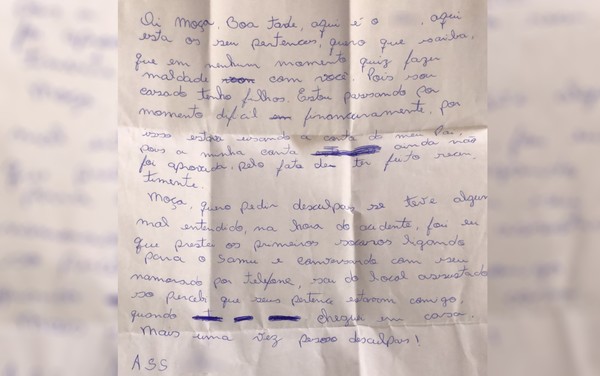 Oi moça, Boa tarde, aqui é o , aqui
esta os seu pertences, quero que saiba,
que em nenhum momento quiz fazer
maldade com você. Pois sou
casado tenho filhos. Estou passando por
momento dificil em financeiramente, por
isso estava usando a conta do meu Pai,
pois a minha conta ainda não
foi aprovada, pelo fato de ter feito recen
timente.
Moça, quero pedir desculpas, se teve algum
mal entendido, na hora do acidente, fou eu
que prestei os primeiros socorros ligando
para o Samu e conversando com seu
namorado por telefone, sai do local assustado
so percebi que seus pertence estavam comigo,
quando cheguei em casa.
Mais uma vez peço desculpas!
ASS